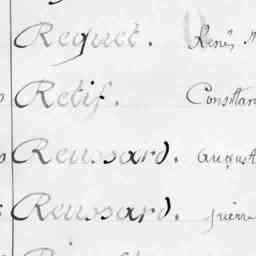 Requet. René
Retif. Constan
Reussard. August
Reussard. Pierre